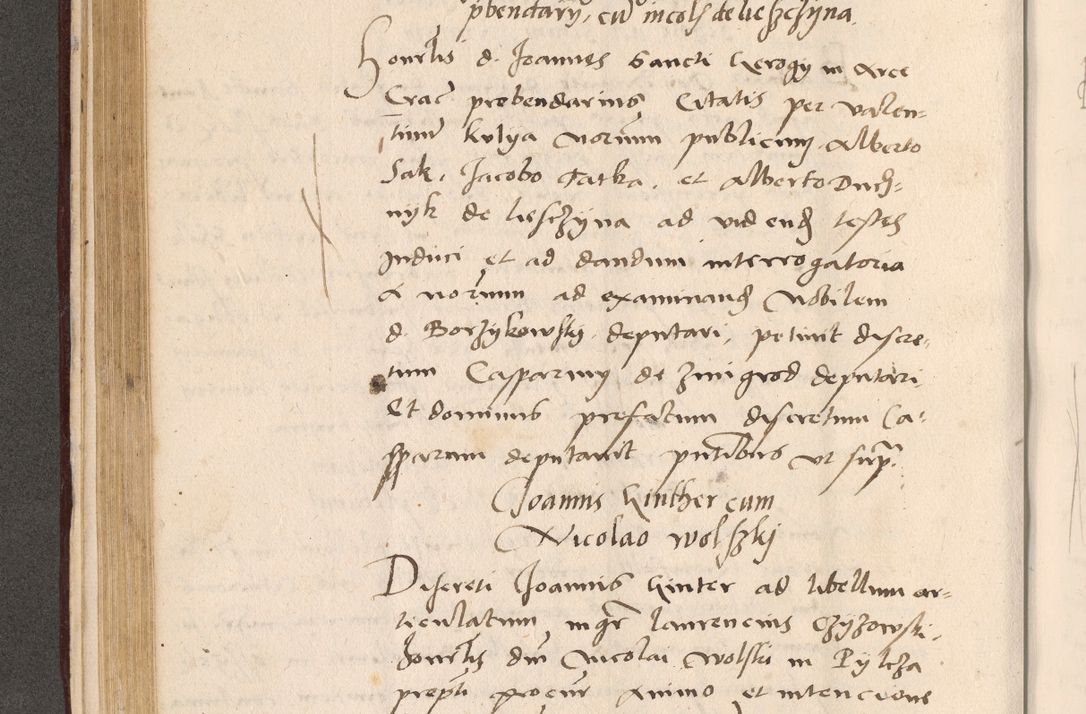 pbendary, cū incolis de lieszczyna
Honrlis d. Joannes Sancti Gerogy in Arce
Crac̄ prebendarius Citatis per valen-
tinū kulya norium publicum, Alberto
Sak, Jacobo Tatka, et Alberto Duch-
nyk de lieszczyna ad videnđ testes
Induci et ad dandum interrogatoria
A norium ad examinanđ Nobilem
d. Borzykowsky deputari, petiuit discre-
tum Casparum de Zmigrod deputari
Et dominus prefatum discretum Ca-
sparum deputauit pntibus vt supra
Joannis Ginther cum
Nicolao wolszkj
Discreti Joannis Ginter ad libellum ar-
ticulatum mgr laurencius Czyzowski,
honrlis dni Nicolai wolski in Pylcza
prepti procur animo et intencione